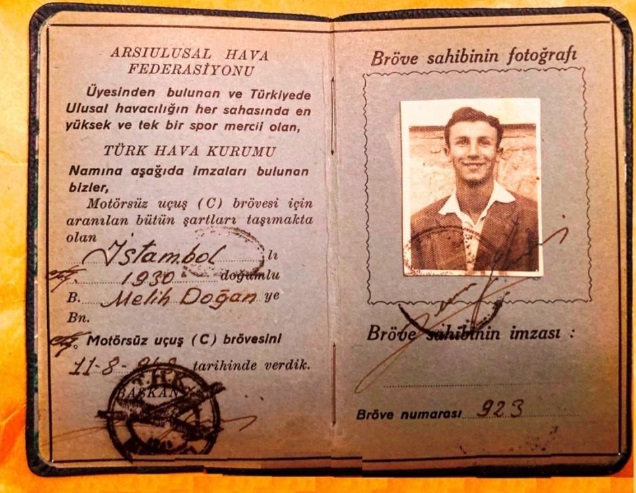 ARSIULUSAL HAVA
FEDERASİYONU
Üyesinden bulunan ve Türkiyede
Ulusal havacılığın her sahasında en
yüksek ve tek bir spor mercii olan,
TÜRK HAVA KURUMU
Namına aşağıda imzaları bulunan
bizler,
Motörsüz uçuş (C) brövesi için
aranılan bütün şartları taşımakta
olan
İstambol lı
1930 doğumlu
B. Melih Doğan ye
Bn.
Motörsüz uçuş (C) brövesini
11-8-948 tarihinde verdik.
BAŞKANI
Bröve sahibinin fotoğrafı
Bröve sahibinin imzası :
Bröve numarası 923